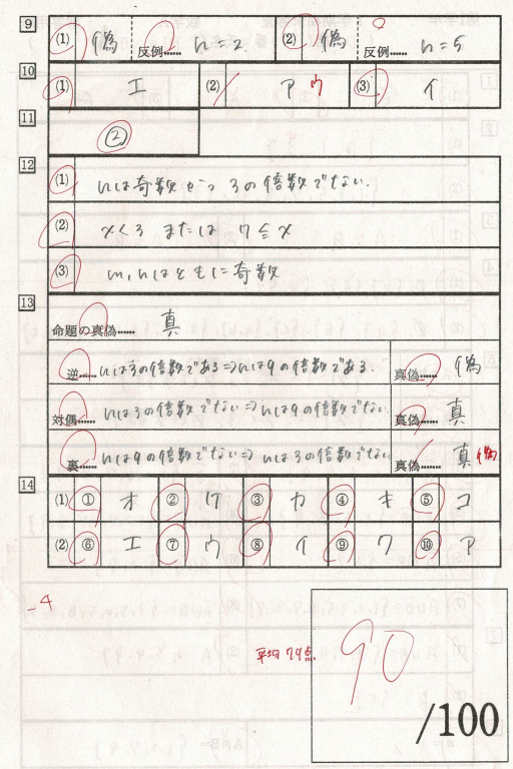 9 (1) 偽 反例…… n=2. (2) 偽 反例…… n=5
10 (1) エ (2) ア ウ (3) イ
11 ②
12 (1) nは奇数かつ3の倍数でない.
(2) x<3 または 7≦x
(3) m,nはともに奇数
13 命題の真偽…… 真
逆…… nは3の倍数である⇒nは9の倍数である. 真偽…… 偽
対偶…… nは3の倍数でない⇒nは9の倍数でない. 真偽…… 真
裏…… nは9の倍数でない⇒nは3の倍数でない 真偽…… 真 偽
14 (1) ① オ ② ケ ③ カ ④ キ ⑤ コ
(2) ⑥ エ ⑦ ウ ⑧ イ ⑨ ク ⑩ ア
-4
平均 79点
90
/100